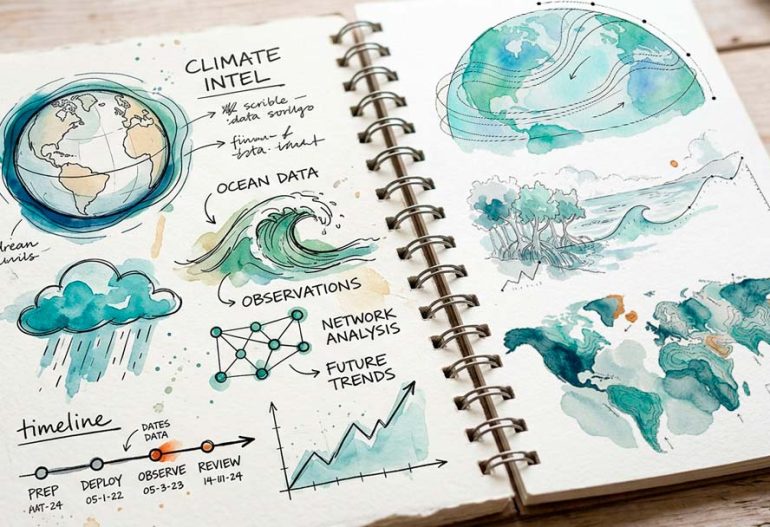 CLIMATE
INTEL
scrible
data
OCEAN DATA
OBSERVATIONS
NETWORK
ANALYSIS
FUTURE
TRENDS
timeline
DATES
DATA
PREP
DEPLOY
OBSERVE
REVIEW
AAT-24
05-1-22
05-3-23
14-111-24